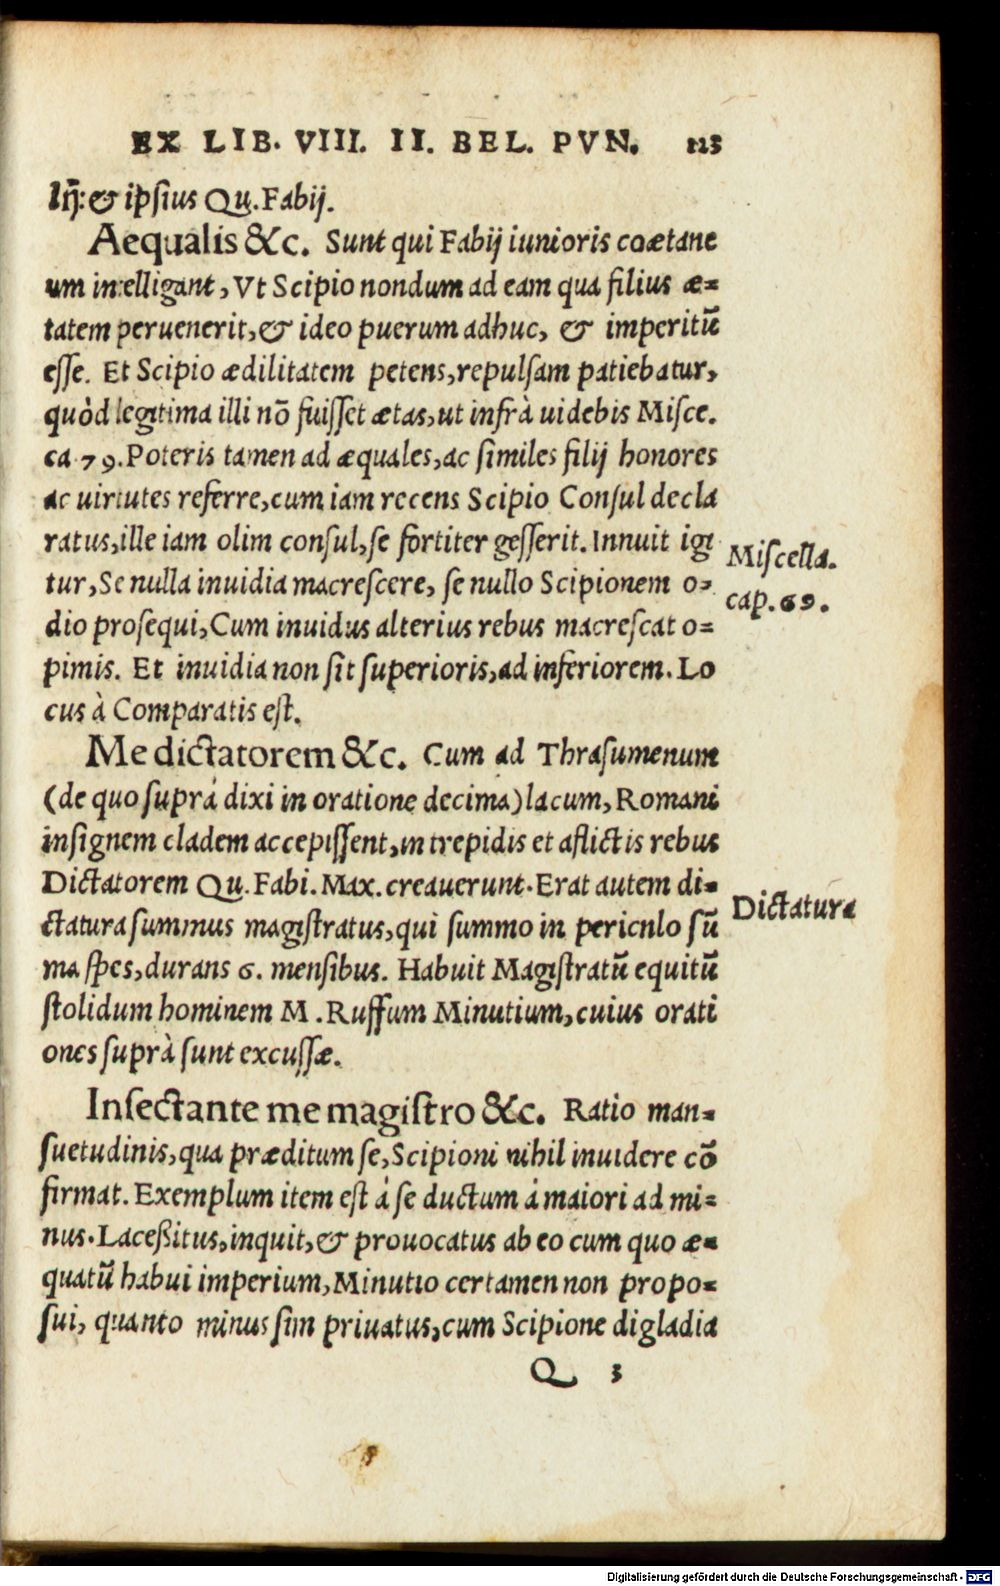 EX LIB. VIII. II. BEL. PVN. 123
& ipsius Qu. Fabij.
Aequalis &c. Sunt qui Fabij iunioris coætane
um intelligant, Vt Scipio nondum ad eam qua filius æ=
tatem peruenerit, & ideo puerum adhuc, & imperitū
esse. Et Scipio ædilitatem petens, repulsam patiebatur,
quòd legitima illi nō fuisset ætas, ut infrà uidebis Misce.
ca 79. Poteris tamen ad æquales, ac similes filij honores
ac uirtutes referre, cum iam recens Scipio Consul decla
ratus, ille iam olim consul, se fortiter gesserit. Innuit igi
tur, Se nulla inuidia macrescere, se nullo Scipionem o=
Miscella.
cap. 69.
dio prosequi, Cum inuidus alterius rebus macrescat o=
pimis. Et inuidia non sit superioris, ad inferiorem. Lo
cus à Comparatis est.
Me dictatorem &c. Cum ad Thrasumenum
(de quo suprà dixi in oratione decima) lacum, Romani
insignem cladem accepissent, in trepidis et aflictis rebus
Dictatorem Qu. Fabi. Max. creauerunt. Erat autem di=
Dictatura
ctatura summus magistratus, qui summo in pericnlo sū
ma spes, durans 6. mensibus. Habuit Magistratū equitū
stolidum hominem M. Ruffum Minutium, cuius orati
ones suprà sunt excussæ.
Insectante me magistro &c. Ratio man=
suetudinis, qua præditum se, Scipioni nihil inuidere cō
firmat. Exemplum item est à se ductum à maiori ad mi=
nus. Laceßitus, inquit, & prouocatus ab eo cum quo æ=
quatū habui imperium, Minutio certamen non propo=
sui, quanto minus sim priuatus, cum Scipione digladia
Q 3
Digitalisierung gefördert durch die Deutsche Forschungsgemeinschaft - DFG